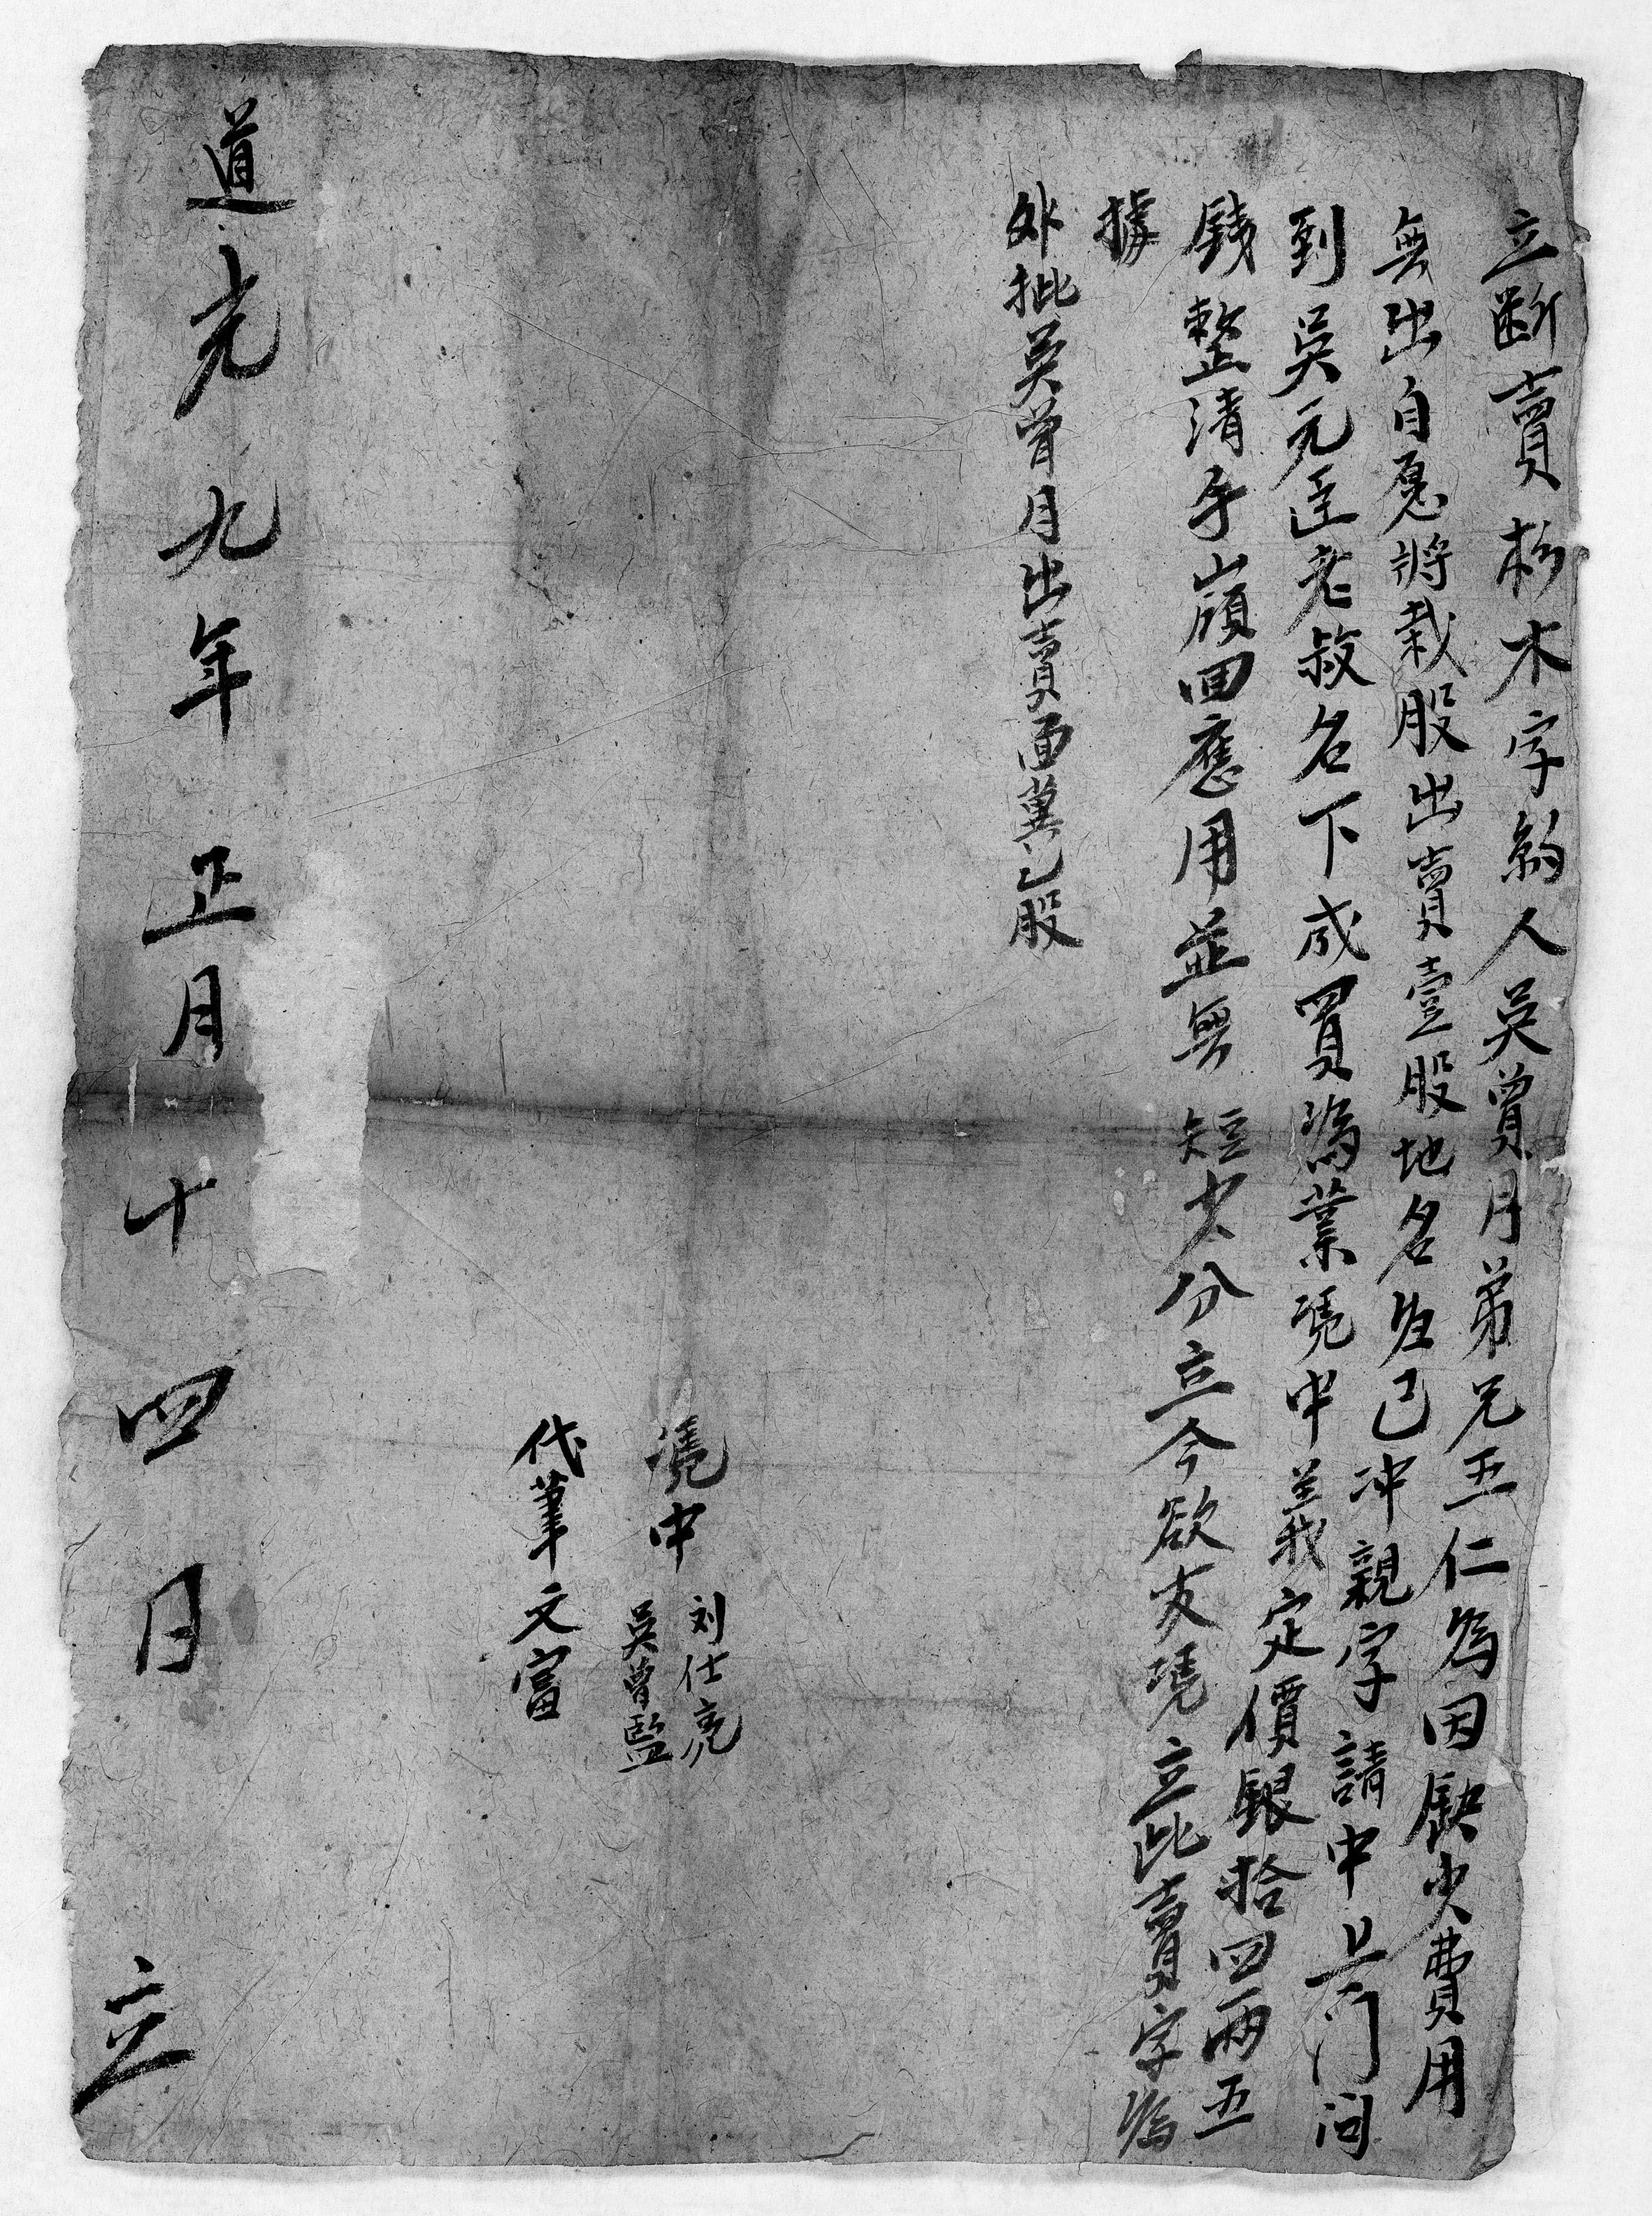 立斷賣杉木字約人吳曾月弟兄玉仁為因缺少費用
無出自愿將栽股出賣壹股地名歸己冲親字請中上門问
到吳元廷老叔名下成買為業凴中義定價銀拾四兩五
錢整清手嶺回應用並無短少分立今欲友凴立此賣字為
據
外批吳曾月出賣面糞乙股
凴中 刘仕亮
吳曾監
代筆文富
道光九年正月十四日 立